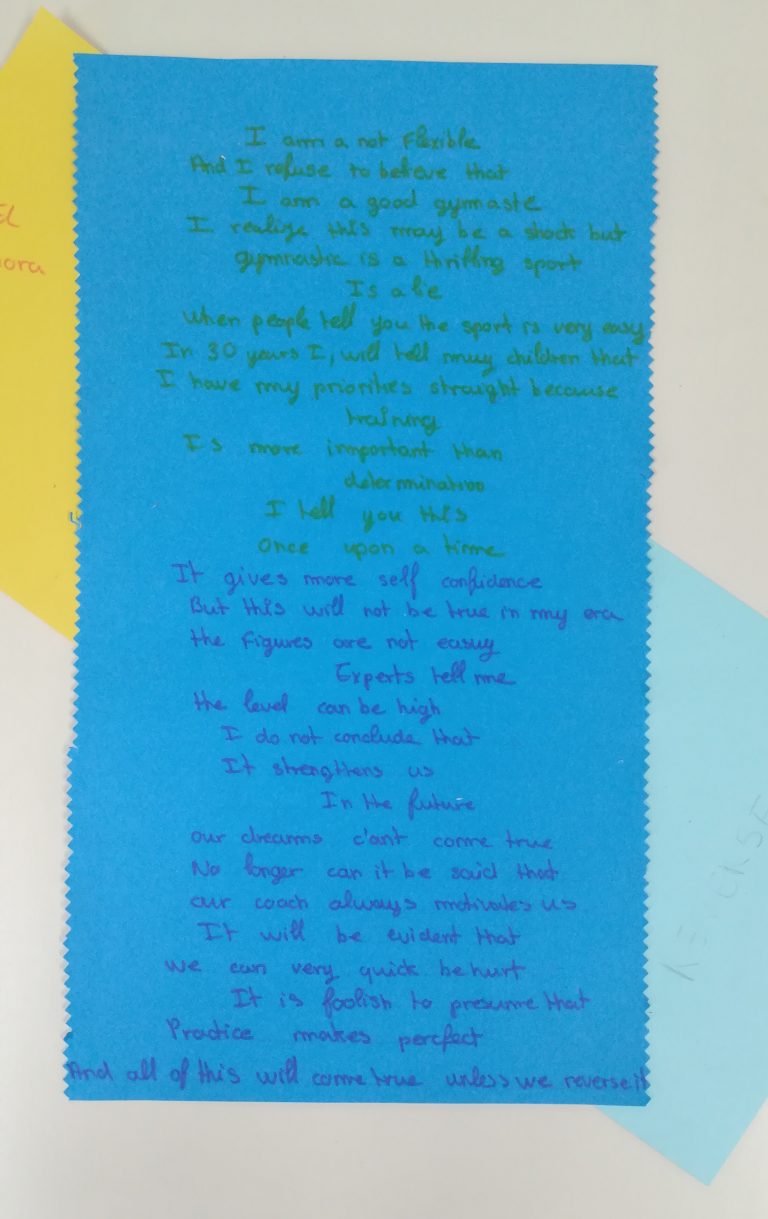 I am a not flexible
And I refuse to beleve that
I am a good gymnaste
I realize this may be a shock but
gymnastic is a thrilling sport
Is a lie
when people tell you the sport is very easy
In 30 years I, will tell muy children that
I have my priorities straight because
training
Is more important than
determination
I tell you this
Once upon a time
It gives more self confidence
But this will not be true in my era
the figures are not easuy
Experts tell me
the level can be high
I do not conclude that
It strengthens us
In the future
our dreams c'ant come true
No longer can it be said that
our coach always motivates us
It will be evident that
we can very quick be hurt
It is foolish to presume that
Practice makes percfect
And all of this will come true unless we reverse it
REVERSE